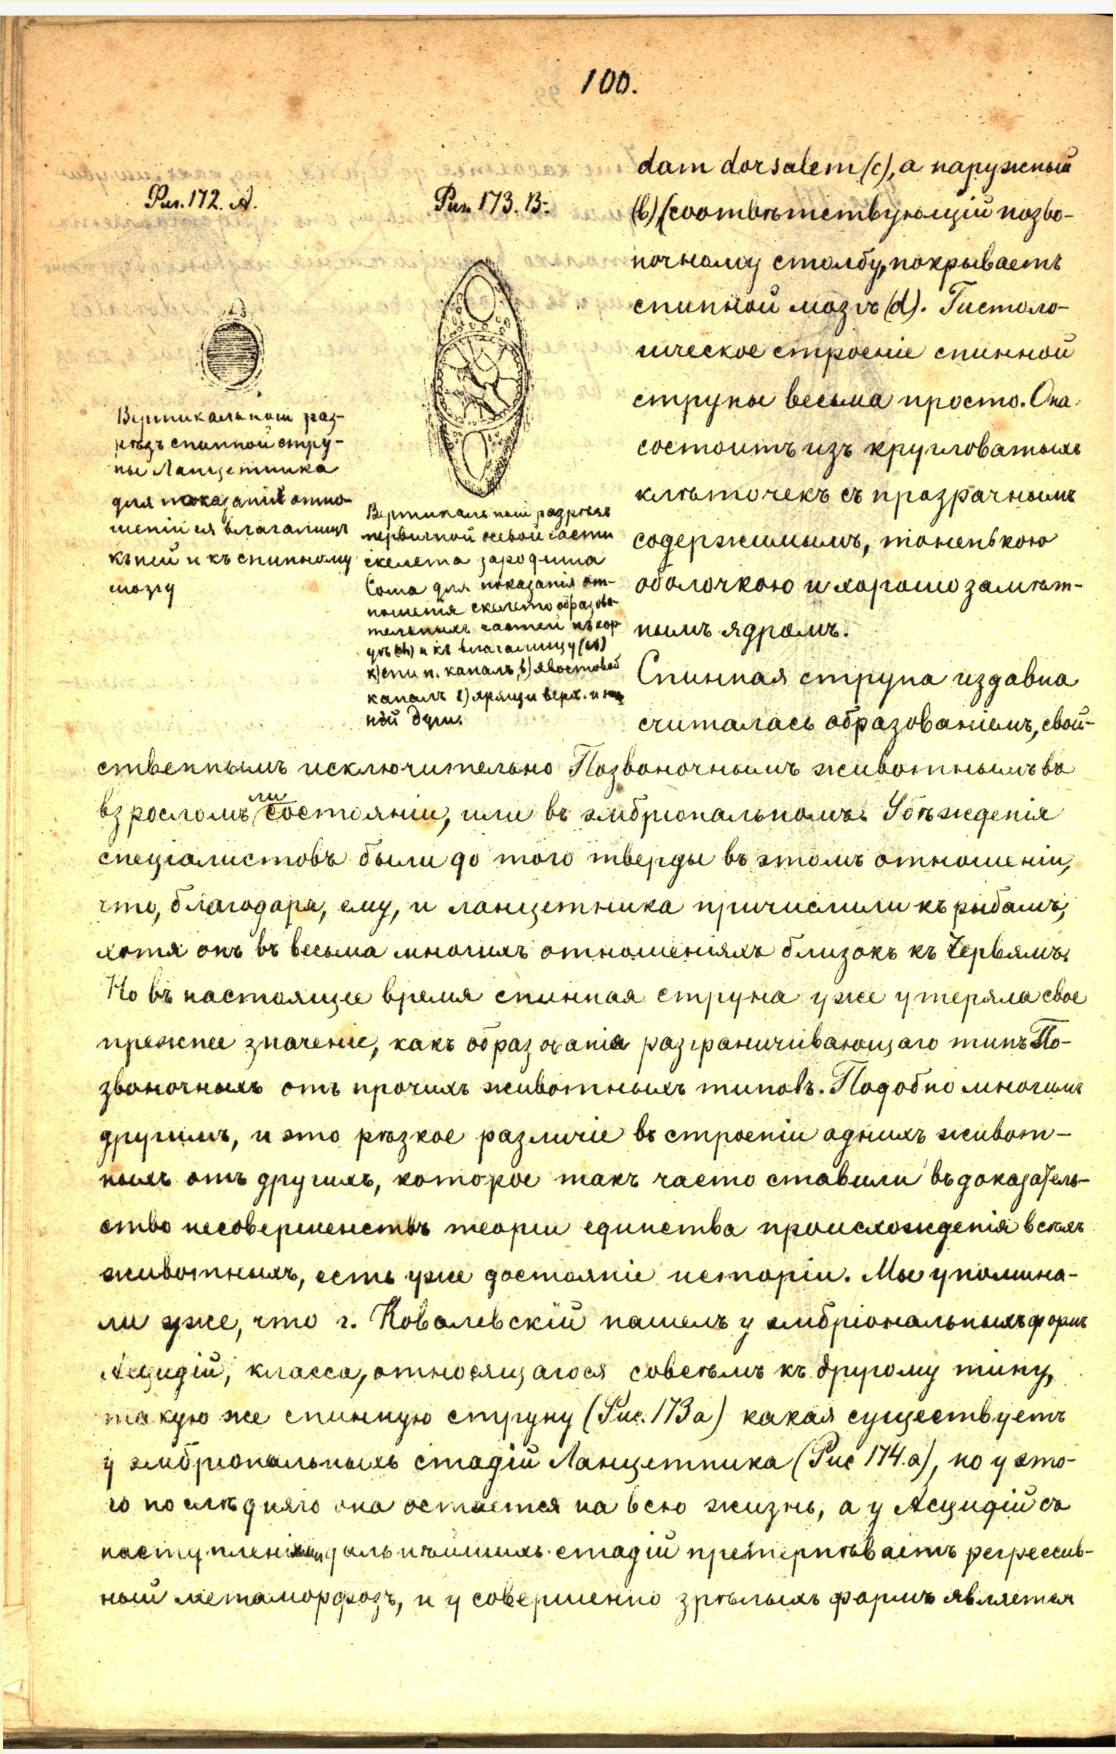 100.
Рис. 172. А.
Вертикальный раз-
рѣзъ спинной стру-
ны Ланцетника
для показанія отно-
шеній ея влагалищъ
къ ней и къ спинному
мозгу
Рис. 173. В.
Вертикальный разрѣзъ
первичной осевой части
скелета зародыша
Сома для показанія от-
ношенія скелето образова-
тельныхъ частей къ хор
дѣ (ch) и къ влагалищу (cs)
к) спи н. каналъ, b) хвостовой
каналъ l) хрящи верх. и ниж
ней дуги.
dam dorsalem (c), а наружный
(b) (соотвѣтствующій позво-
ночному столбу, покрываетъ
спинной мозгъ (d). Гистоло-
гическое строеніе спинной
струны весьма просто. Она
состоитъ изъ кругловатыхъ
клѣточекъ съ прозрачнымъ
содержимымъ, тоненькою
оболочкою и хорошо замѣт-
нымъ ядромъ.
Спинная струна издавна
считалась образованіемъ, свой-
ственнымъ исключительно Позвоночнымъ животнымъ во
взросломъ ли состояніи, или въ эмбріональномъ. Убѣжденія
спеціалистовъ были до того тверды въ этомъ отношеніи,
что, благодаря, ему, и ланцетника причислили къ рыбамъ,
хотя онъ въ весьма многихъ отношеніяхъ близокъ къ Червямъ.
Но въ настоящее время спинная струна уже утеряла свое
прежнее значеніе, какъ образованія разграничивающаго типъ По-
звоночныхъ отъ прочихъ животныхъ типовъ. Подобно многимъ
другимъ, и это рѣзкое различіе въ строеніи однихъ живот-
ныхъ отъ другихъ, которое такъ часто ставили въ доказатель-
ство несовершенствъ теоріи единства происхожденія всѣхъ
животныхъ, есть уже достояніе исторіи. Мы упомина-
ли уже, что г. Ковалевскій нашелъ у эмбріональныхъ формъ
Асцидій, класса, относящагося совсѣмъ къ другому типу,
такую же спинную струну (Рис. 173 а) какая существуетъ
у эмбріональныхъ стадій Ланцетника (Рис 174. а), но у это-
го послѣдняго она остается на всю жизнь, а у Асцидій съ
наступленіемъ дальнѣйшихъ стадій претерпѣваетъ регрессив-
ный метаморфозъ, и у совершенно зрѣлыхъ формъ является